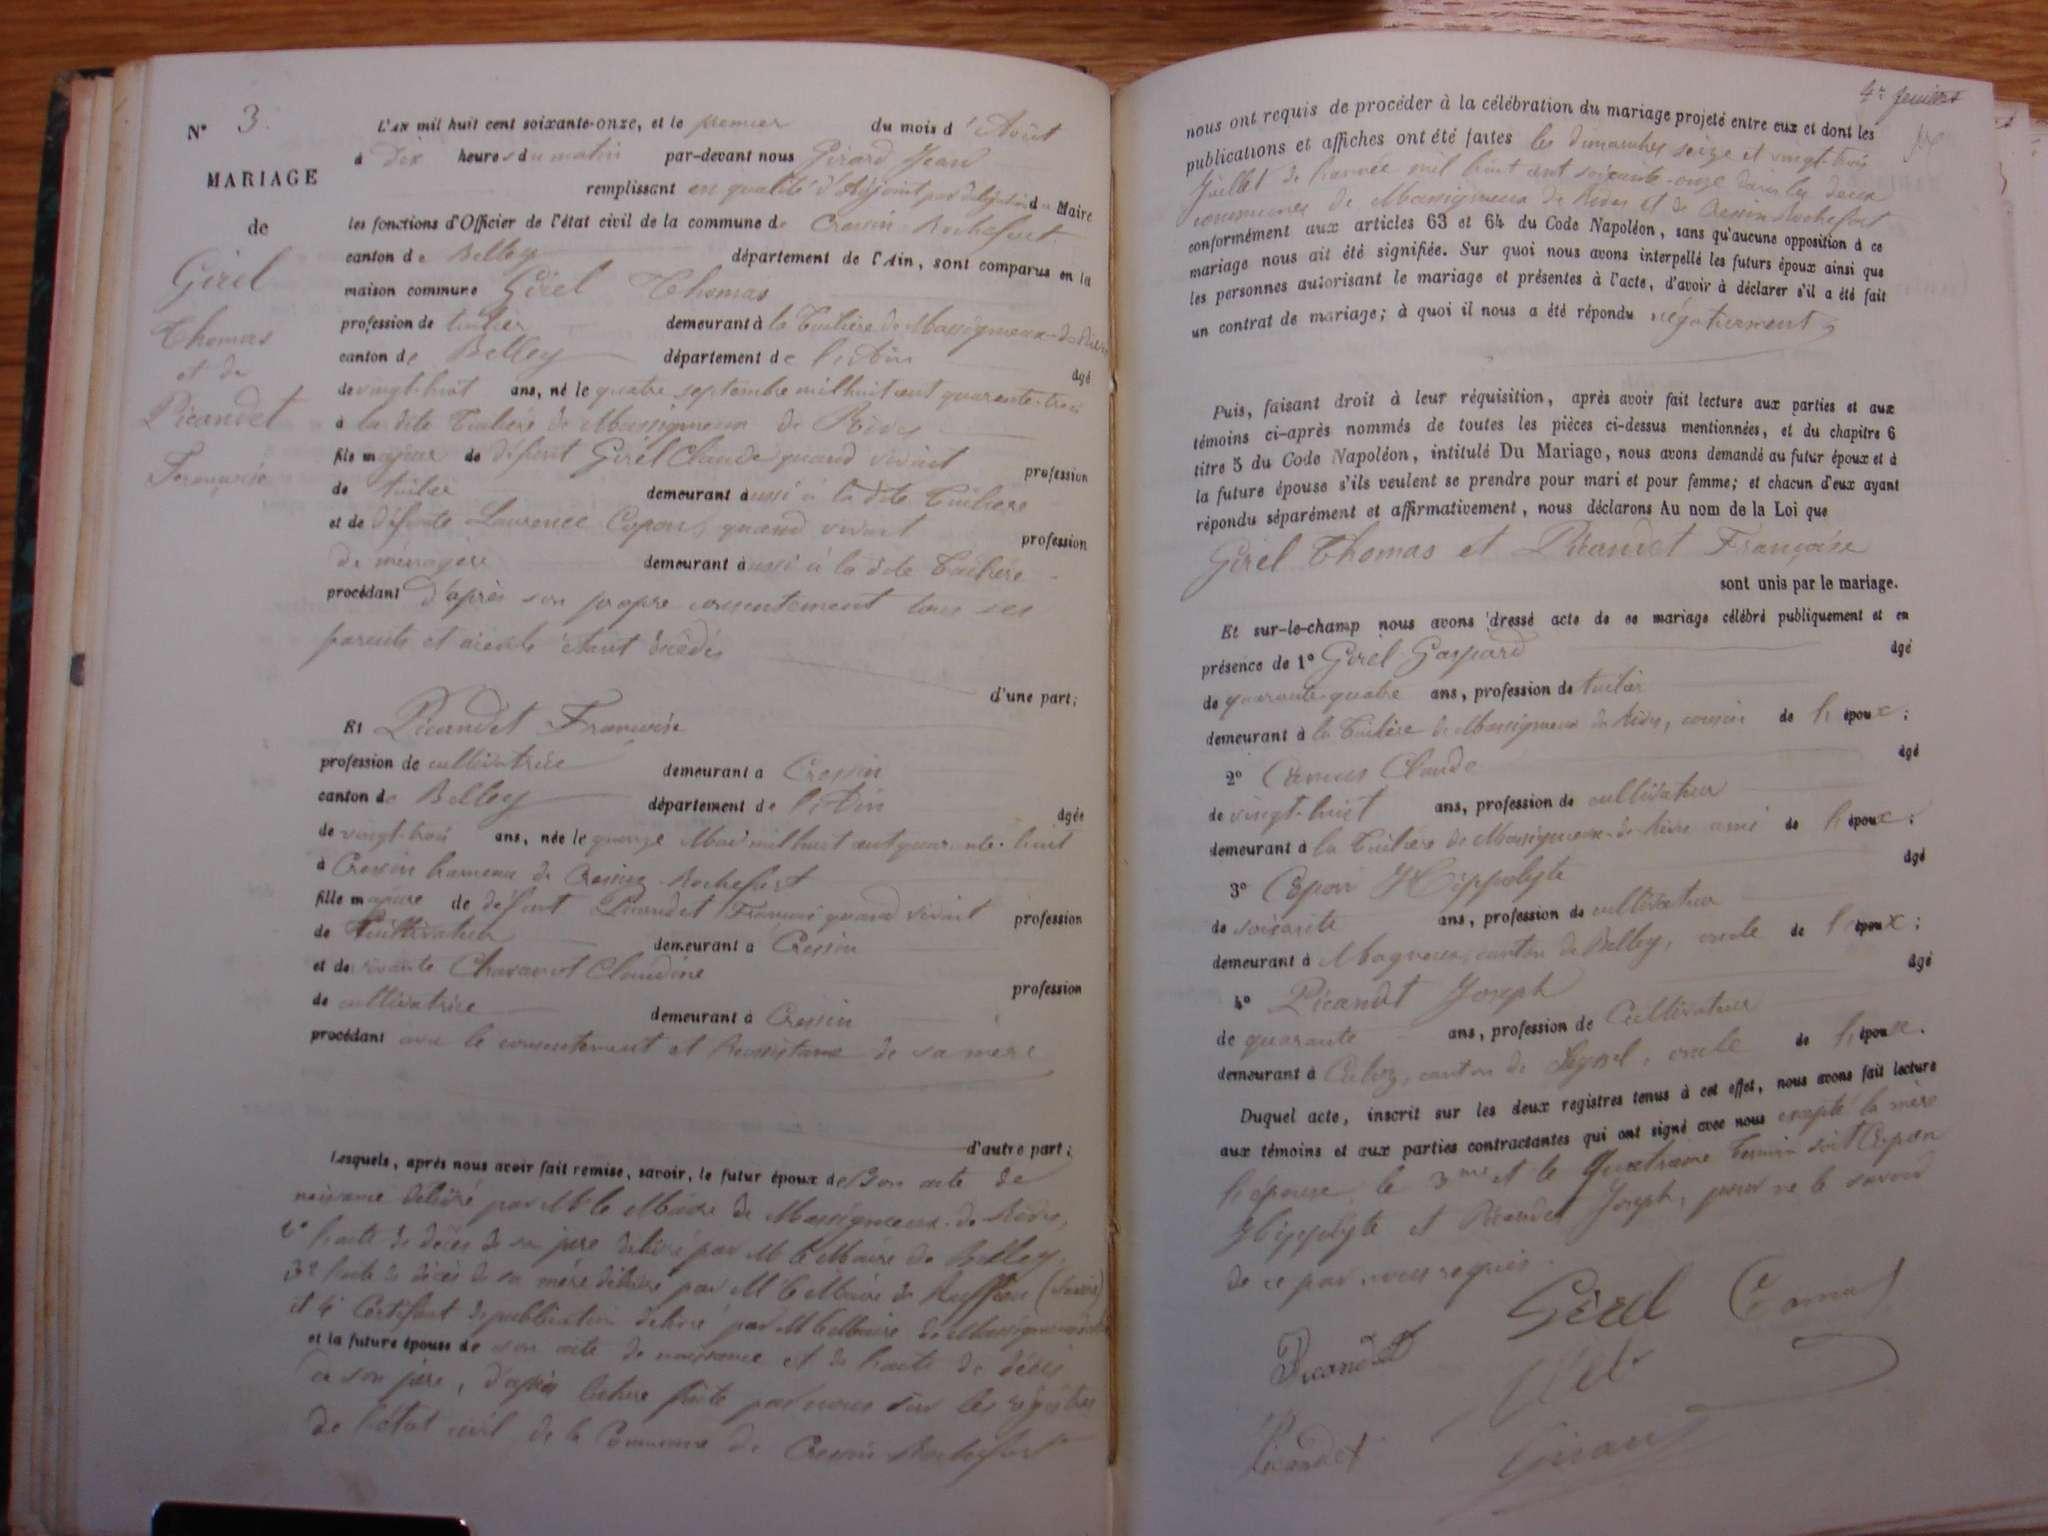 N° 3.
MARIAGE
de
Girel
Thomas
et de
Picandet
Françoise
L'AN mil huit cent soixante-onze, et le premier du mois d'Août
à Dix heures du matin par-devant nous Girard Jean
remplissant en qualité d'Adjoint par délégation du Maire
les fonctions d'Officier de l'état civil de la commune de Cressin Rochefort
canton de Belley département de l'Ain, sont comparus en la
maison commune Girel Thomas
profession de tuilier demeurant à la Tuilière de Massigneux-de-Rives
canton de Belley département de l'Ain âgé
de vingt-huit ans, né le quatre septembre mil huit cent quarante-trois
à la dite Tuilière de Massigneux de Rives
fils majeur de défunt Girel Claude quand vivait profession
de tuilier demeurant aussi à la dite Tuilière
et de défunte Laurence Cépon, quand vivait profession
de ménagère demeurant aussi à la dite Tuilière
procédant d'après son propre consentement tous ses
parents et aïeuls étant décédés
d'une part;
Et Picandet Françoise
profession de cultivatrice demeurant à Cressin
canton de Belley département de l'Ain âgée
de vingt-trois ans, née le quinze Mai mil huit cent quarante-huit
à Cressin hameau de Cressin-Rochefort
fille majeure de défunt Picandet François quand vivait profession
de Cultivateur demeurant à Cressin
et de vivante Charavet Claudine profession
de cultivatrice demeurant à Cressin
procédant avec le consentement et l'assistance de sa mère
d'autre part;
Lesquels, après nous avoir fait remise, savoir, le futur époux de Son acte de
naissance délivré par Mr le Maire de Massigneux-de-Rives,
2° l'acte de décès de son père délivré par M le Maire de Belley,
3° l'acte de décès de sa mère délivré par M le Maire de Ruffieu (Savoie)
et 4° Certificat de publication délivré par M le Maire de Massigneux
et la future épouse de son acte de naissance et de l'acte de décès
de son père, d'après lecture faite par nous sur les registres
de l'état civil de la Commune de Cressin Rochefort
4e feuillet
nous ont requis de procéder à la célébration du mariage projeté entre eux et dont les
publications et affiches ont été faites les dimanches seize et vingt-trois
Juillet de l'année mil huit cent soixante-onze dans les deux
communes de Massigneux de Rives et de Cressin Rochefort
conformément aux articles 63 et 64 du Code Napoléon, sans qu'aucune opposition à ce
mariage nous ait été signifiée. Sur quoi nous avons interpellé les futurs époux ainsi que
les personnes autorisant le mariage et présentes à l'acte, d'avoir à déclarer s'il a été fait
un contrat de mariage; à quoi il nous a été répondu négativement,
Puis, faisant droit à leur réquisition, après avoir fait lecture aux parties et aux
témoins ci-après nommés de toutes les pièces ci-dessus mentionnées, et du chapitre 6
titre 5 du Code Napoléon, intitulé Du Mariage, nous avons demandé au futur époux et à
la future épouse s'ils veulent se prendre pour mari et pour femme; et chacun d'eux ayant
répondu séparément et affirmativement, nous déclarons Au nom de la Loi que
Girel Thomas et Picandet Françoise
sont unis par le mariage.
Et sur-le-champ nous avons dressé acte de ce mariage célébré publiquement et en
présence de 1° Girel Gaspard âgé
de quarante-quatre ans, profession de tuilier
demeurant à la Tuilière de Massigneux de Rives, cousin de l'époux;
2° Camus Claude âgé
de vingt-huit ans, profession de cultivateur
demeurant à la Tuilière de Massigneux-de-Rives ami de l'époux;
3° Cépon Hippolyte âgé
de soixante ans, profession de cultivateur
demeurant à Magnieu, canton de Belley, oncle de l'époux;
4° Picandet Joseph âgé
de quarante ans, profession de Cultivateur
demeurant à Culoz, canton de Seyssel, oncle de l'épouse.
Duquel acte, inscrit sur les deux registres tenus à cet effet, nous avons fait lecture
aux témoins et aux parties contractantes qui ont signé avec nous excepté la mère
l'épouse, le 3me et le quatrième témoin soit Cépon
Hippolyte et Picandet Joseph, pour ne le savoir
de ce par nous requis.
Girel Camus
Picandet
Picandet Girard